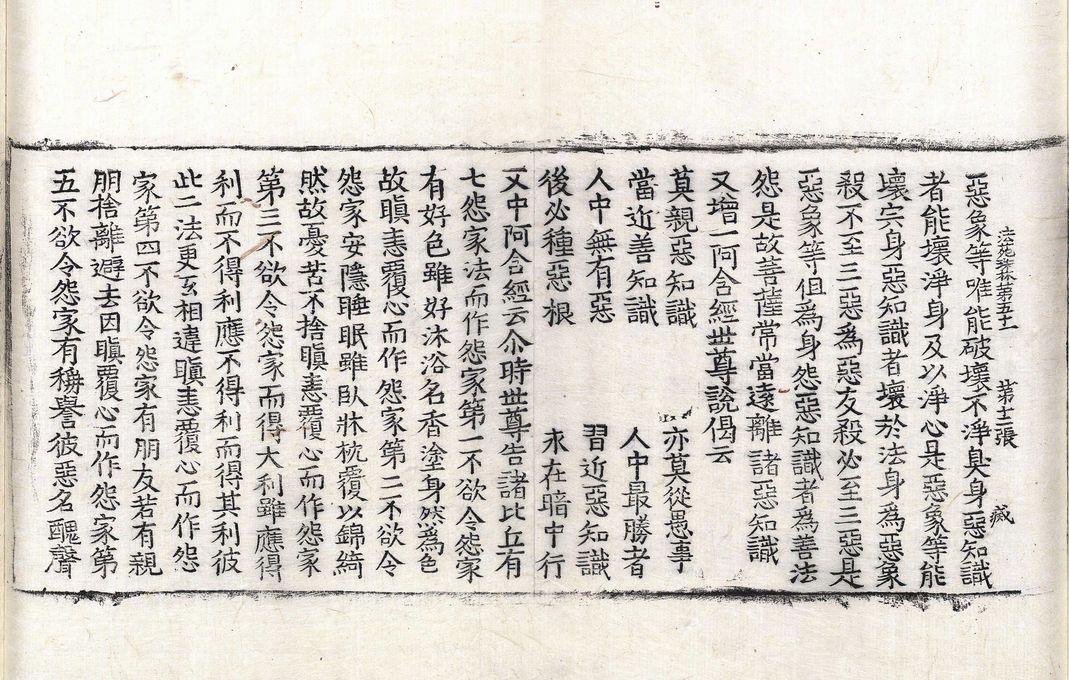 法苑珠林第五十一　第十二張　感
惡象等唯能破壞不淨臭身惡知識
者能壞淨身及以淨心是惡象等能
壞宍身惡知識者壞於法身爲惡象
殺不至三惡爲惡友殺必至三惡是
惡象等但爲身怨惡知識者爲善法
怨是故菩薩常當遠離諸惡知識
又增一阿含經世尊說偈云
莫親惡知識　亦莫從愚事
當近善知識　人中最勝者
人中無有惡　習近惡知識
後必種惡根　永在暗中行
又中阿含經云尒時世尊告諸比丘有
七怨家法而作怨家第一不欲令怨家
有好色雖好沐浴名香塗身然爲色
故瞋恚覆心而作怨家第二不欲令
怨家安隱睡眠雖臥牀枕覆以錦綺
然故憂苦不捨瞋恚覆心而作怨家
第三不欲令怨家而得大利雖應得
利而不得利應不得利而得其利彼
此二法更互相違瞋恚覆心而作怨
家第四不欲令怨家有朋友若有親
朋捨離避去因瞋覆心而作怨家第
五不欲令怨家有稱譽彼惡名醜聲